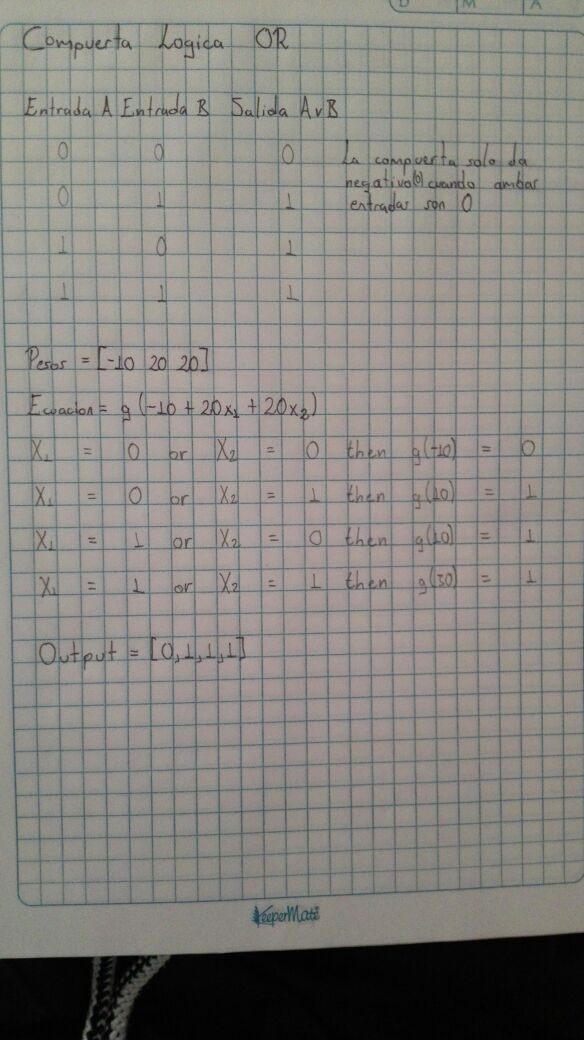 D M A
Compuerta Logica OR
Entrada A Entrada B Salida AvB
0 0 0 La compuerta solo da
negativo(0) cuando ambas
0 1 1 entradas son 0
1 0 1
1 1 1
Pesos = [-10 20 20]
Ecuacion = g(-10 + 20x1 + 20x2)
X1 = 0 or X2 = 0 then g(-10) = 0
X1 = 0 or X2 = 1 then g(10) = 1
X1 = 1 or X2 = 0 then g(10) = 1
X1 = 1 or X2 = 1 then g(30) = 1
Output = [0,1,1,1]
KeeperMate